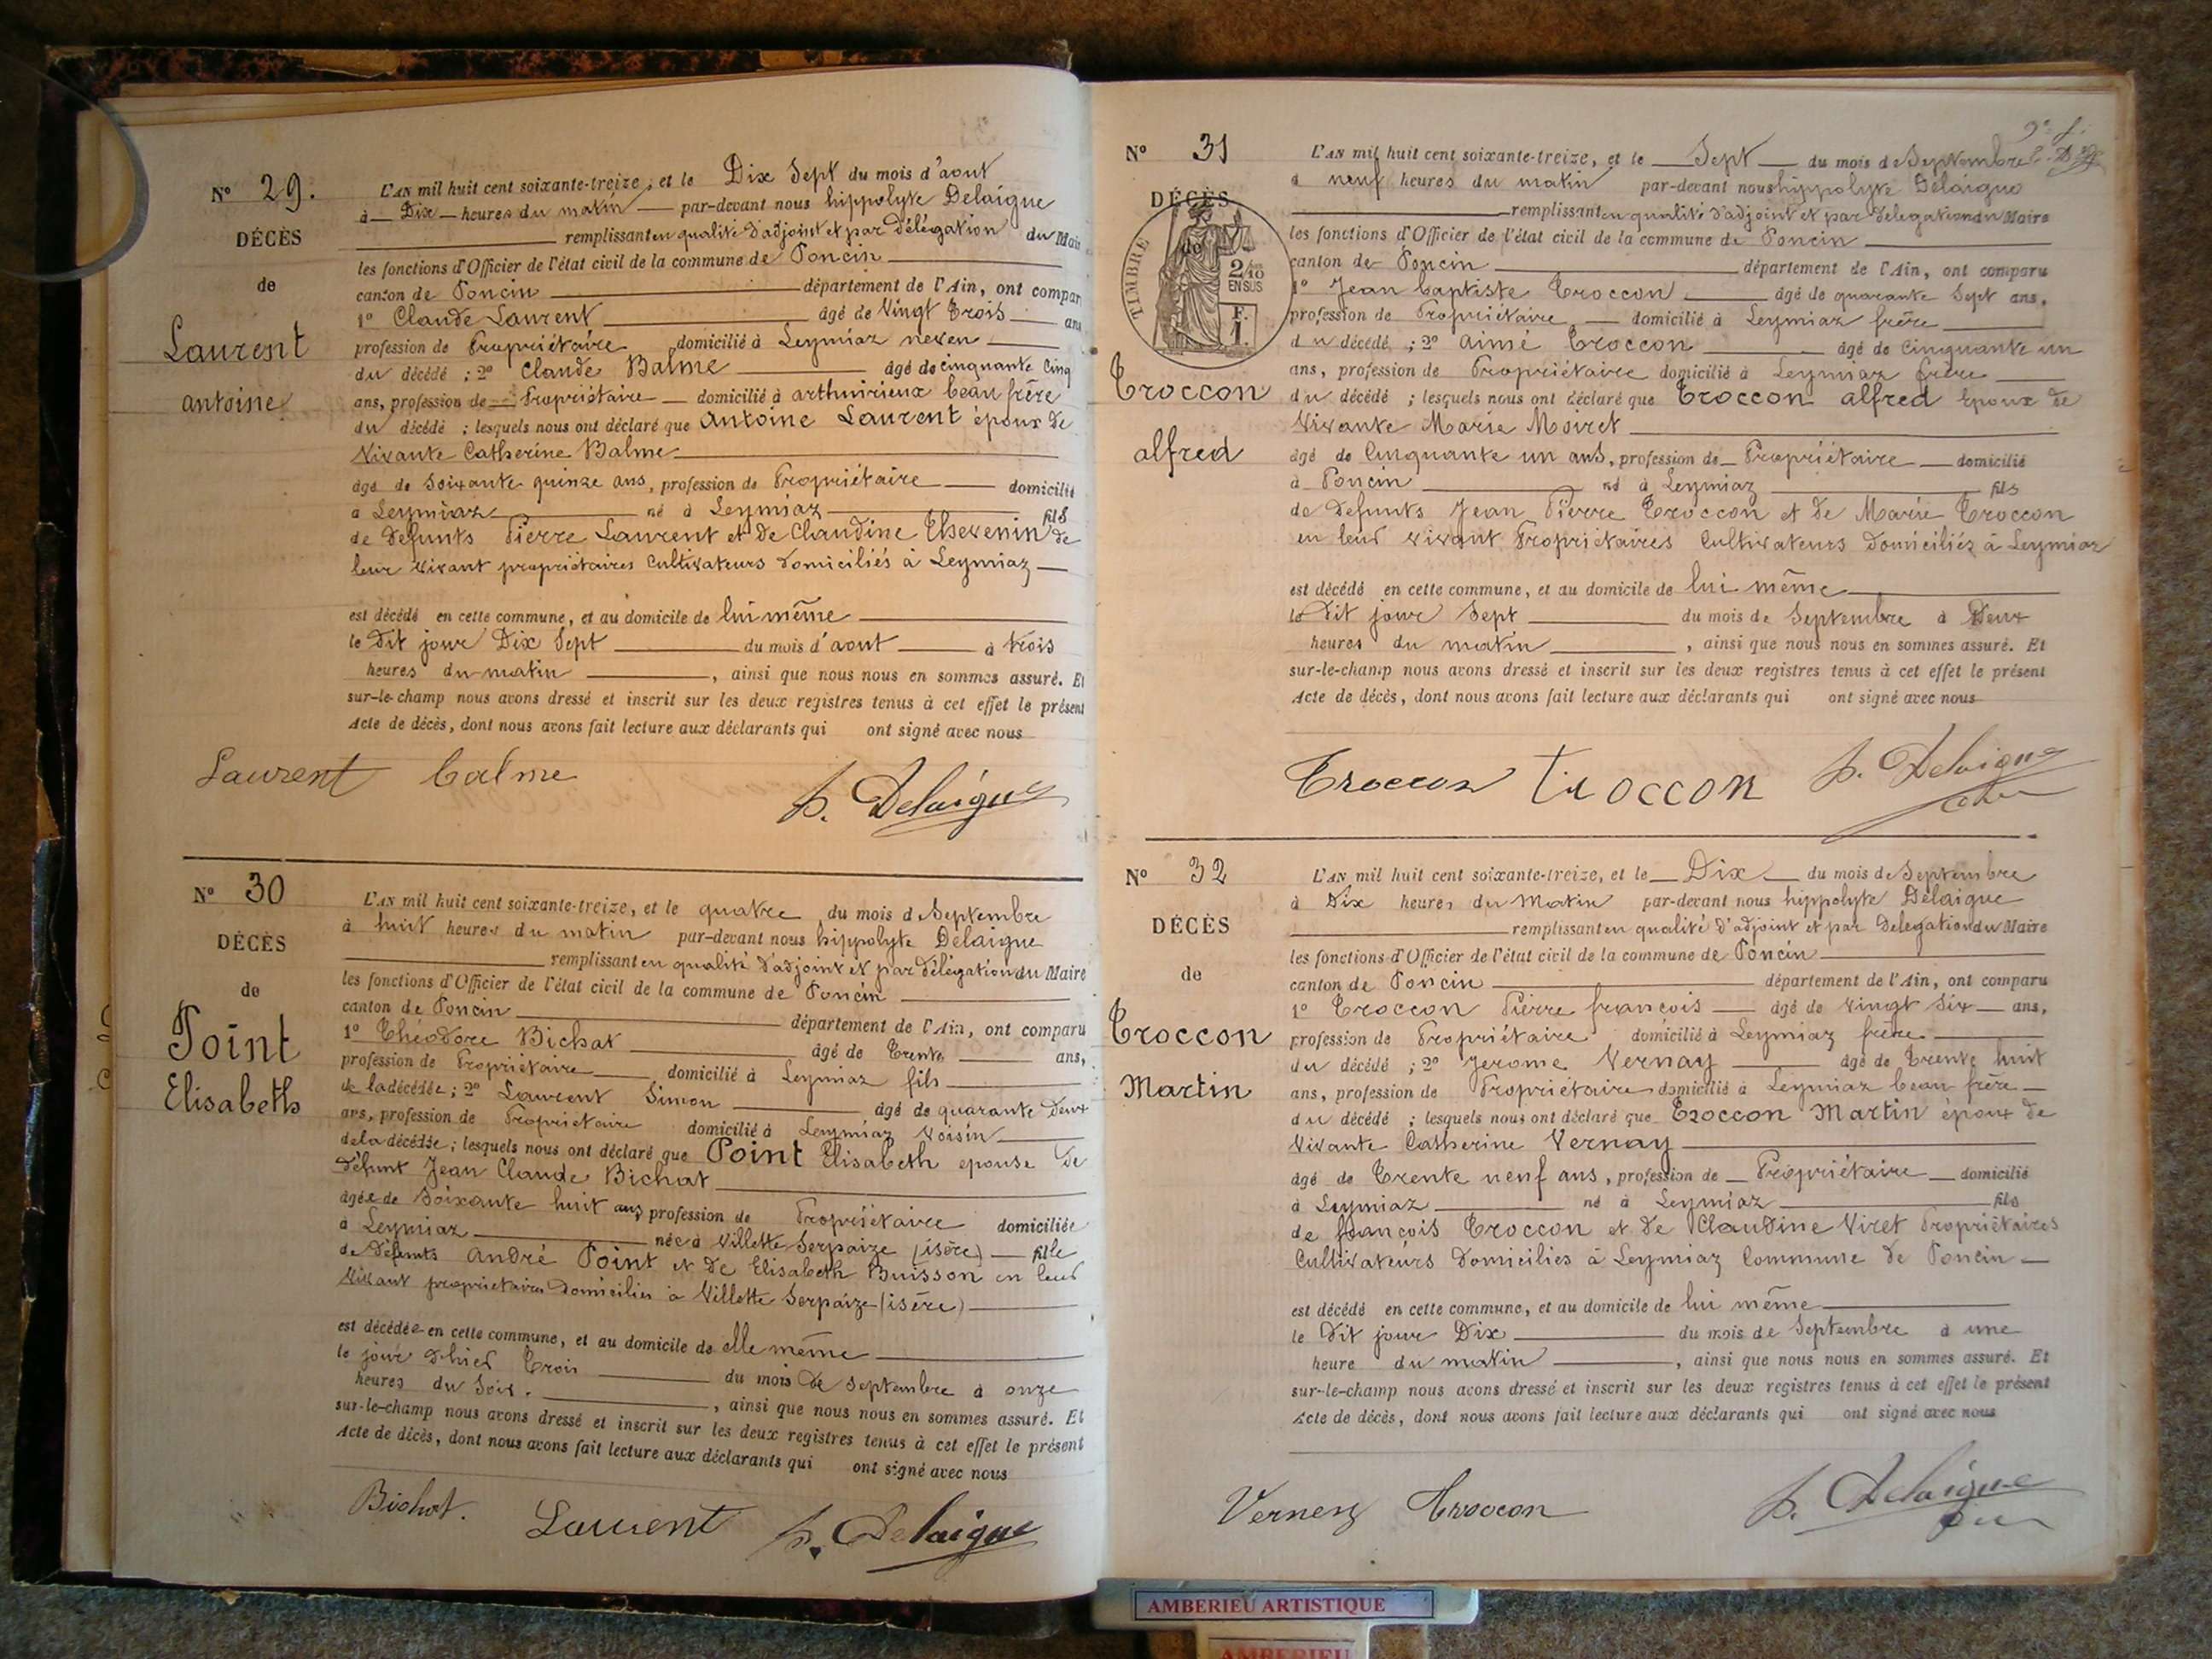 Nº 29.
DÉCÈS
de
Laurent
antoine
L'AN mil huit cent soixante-treize, et le Dix Sept du mois d'aout
à Dix heures du matin par-devant nous hippolyte Delaigue
remplissant en qualité d'adjoint et par délégation du Mair
les fonctions d'Officier de l'état civil de la commune de Poncin
canton de Poncin département de l'Ain, ont compar
1º Claude Laurent âgé de Vingt trois ans
profession de Propriétaire domicilié à Leymiaz neveu
du décédé ; 2º Claude Balme âgé de cinquante cinq
ans, profession de Propriétaire domicilié à arthurieux beau frère
du décédé ; lesquels nous ont déclaré que Antoine Laurent époux de
Vivante Catherine Balme
âgé de soixante quinze ans, profession de Propriétaire domicilié
à Leymiaz né à Leymiaz fils
de defunts Pierre Laurent et de Claudine Thevenin de
leur vivant propriétaires Cultivateurs domiciliés à Leymiaz
est décédé en cette commune, et au domicile de lui même
le dit jour Dix Sept du mois d'aout à trois
heures du matin , ainsi que nous nous en sommes assuré. Et
sur-le-champ nous avons dressé et inscrit sur les deux registres tenus à cet effet le présent
Acte de décès, dont nous avons fait lecture aux déclarants qui ont signé avec nous
Laurent balme h. Delaigue
Nº 30
DÉCÈS
de
Point
Elisabeth
L'AN mil huit cent soixante-treize, et le quatre du mois de Septembre
à huit heures du matin par-devant nous hippolyte Delaigue
remplissant en qualité d'adjoint et par délégation du Maire
les fonctions d'Officier de l'état civil de la commune de Poncin
canton de Poncin département de l'Ain, ont comparu
1º Théodore Bichat âgé de trente ans,
profession de Propriétaire domicilié à Leymiaz fils
de la décédée ; 2º Laurent Simon âgé de quarante deux
ans, profession de Propriétaire domicilié à Leymiaz Voisin
de la décédée ; lesquels nous ont déclaré que Point Elisabeth epouse de
défunt Jean Claude Bichat
âgée de Soixante huit ans profession de Propriétaire domiciliée
à Leymiaz née à Villette Serpaize (isère) fille
de défunts André Point et de Elisabeth Buisson en leur
Vivant proprietaires Domiciliés à Villette Serpaize (isère)
est décédée en cette commune, et au domicile de elle même
le jour d'hier trois du mois de septembre à onze
heures du Soir. , ainsi que nous nous en sommes assuré. Et
sur-le-champ nous avons dressé et inscrit sur les deux registres tenus à cet effet le présent
Acte de décès, dont nous avons fait lecture aux déclarants qui ont signé avec nous
Bichat. Laurent h. Delaigue
Nº 31
DÉCÈS
de
TIMBRE
2/10
EN SUS
F.
1.
Troccon
alfred
L'AN mil huit cent soixante-treize, et le Sept du mois de Septembre
à neuf heures du matin par-devant nous hippolyte Delaigue
remplissant en qualité d'adjoint et par délégation du Maire
les fonctions d'Officier de l'état civil de la commune de Poncin
canton de Poncin département de l'Ain, ont comparu
1º Jean baptiste Troccon âgé de quarante Sept ans,
profession de Propriétaire domicilié à Leymiaz frère
du décédé ; 2º aimé Troccon âgé de Cinquante un
ans, profession de Propriétaire domicilié à Leymiaz frère
du décédé ; lesquels nous ont déclaré que Troccon alfred époux de
Vivante Marie Moiret
âgé de Cinquante un ans, profession de Propriétaire domicilié
à Poncin né à Leymiaz fils
de defunts Jean Pierre Troccon et de Marie Troccon
en leur vivant Propriétaires Cultivateurs Domiciliés à Leymiaz
est décédé en cette commune, et au domicile de lui même
le dit jour Sept du mois de Septembre à Deux
heures du matin , ainsi que nous nous en sommes assuré. Et
sur-le-champ nous avons dressé et inscrit sur les deux registres tenus à cet effet le présent
Acte de décès, dont nous avons fait lecture aux déclarants qui ont signé avec nous
Troccon troccon h. Delaigue
Nº 32
DÉCÈS
de
Troccon
Martin
L'AN mil huit cent soixante-treize, et le Dix du mois de Septembre
à Dix heures du Matin par-devant nous hippolyte Delaigue
remplissant en qualité d'adjoint et par Delegation du Maire
les fonctions d'Officier de l'état civil de la commune de Poncin
canton de Poncin département de l'Ain, ont comparu
1º Troccon Pierre francois âgé de vingt six ans,
profession de Propriétaire domicilié à Leymiaz frère
du décédé ; 2º Jerome Vernay âgé de trente huit
ans, profession de Propriétaire domicilié à Leymiaz beau frère
du décédé ; lesquels nous ont déclaré que Troccon Martin époux de
Vivante Catherine Vernay
âgé de trente neuf ans, profession de Propriétaire domicilié
à Leymiaz né à Leymiaz fils
de francois Troccon et de Claudine Viret Propriétaires
Cultivateurs Domiciliés à Leymiaz Commune de Poncin
est décédé en cette commune, et au domicile de lui même
le dit jour Dix du mois de Septembre à une
heure du matin , ainsi que nous nous en sommes assuré. Et
sur-le-champ nous avons dressé et inscrit sur les deux registres tenus à cet effet le présent
Acte de décès, dont nous avons fait lecture aux déclarants qui ont signé avec nous
Vernay Troccon h. Delaigue
AMBERIEU ARTISTIQUE
AMBERIEU